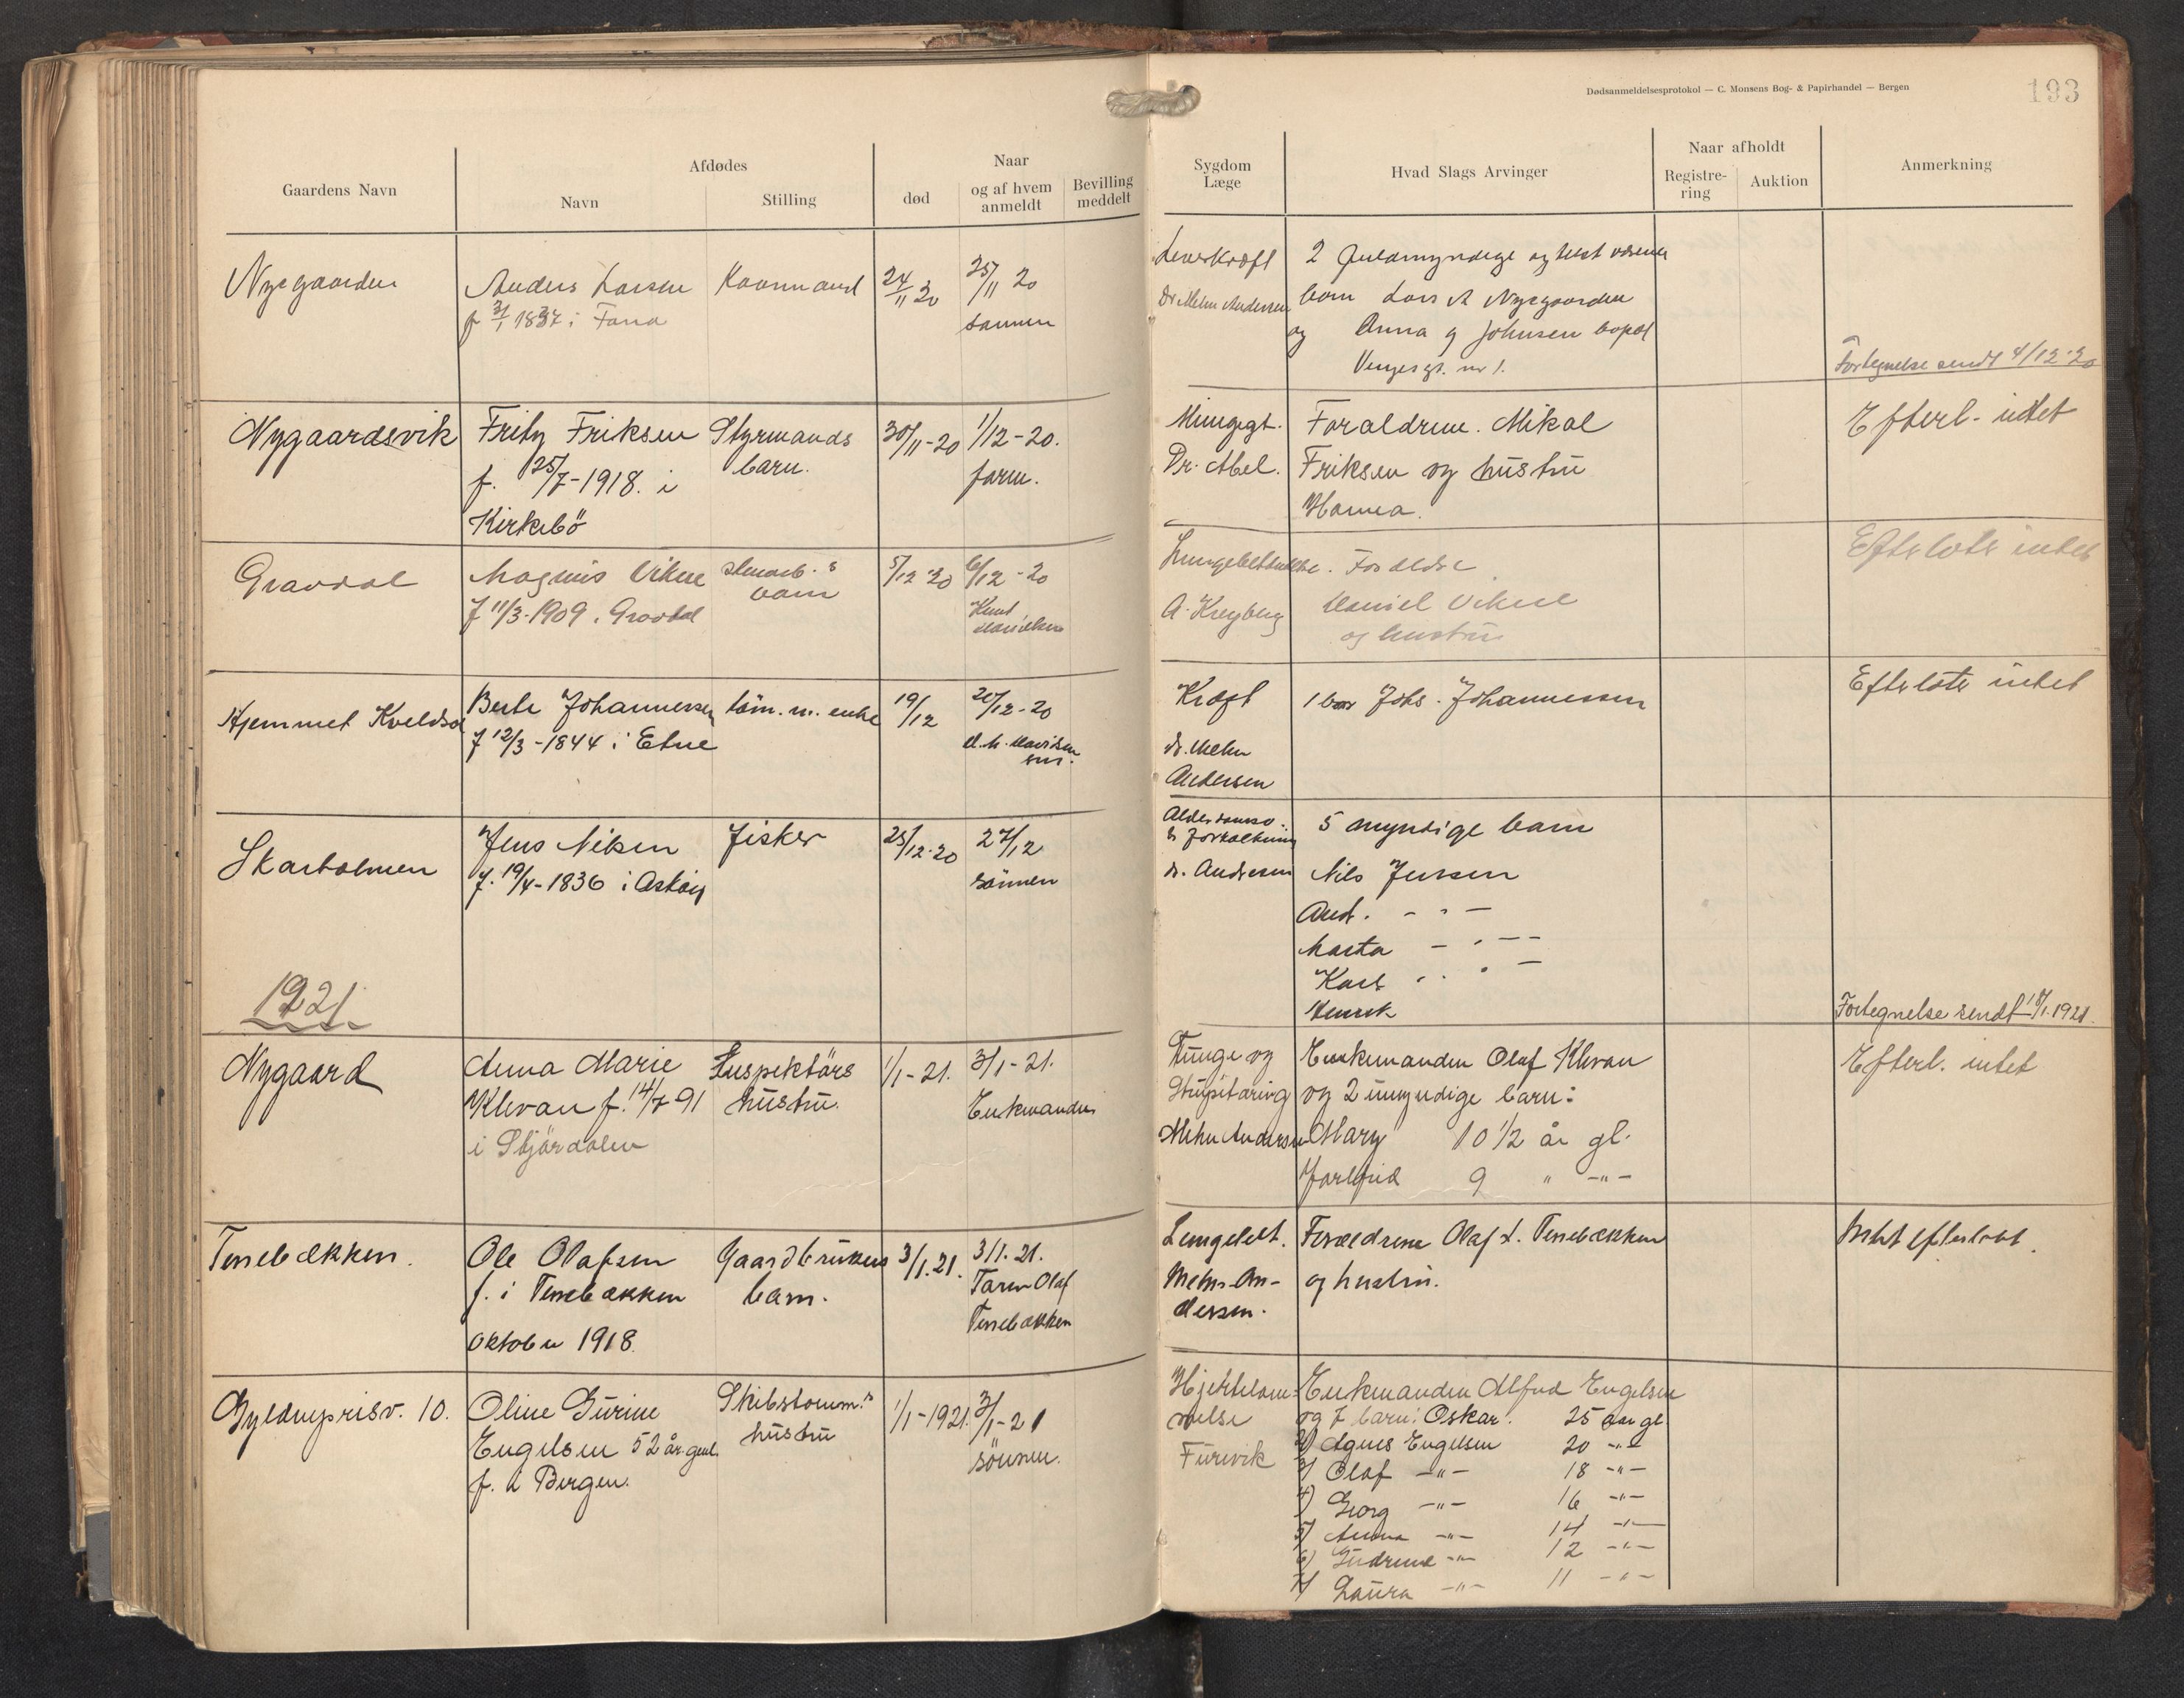 Dødsanmeldelsesprotokol — C. Monsens Bog- & Papirhandel — Bergen
193
Gaardens Navn
Afdødes
Navn
Stilling
død
Naar
og af hvem
anmeldt
Bevilling
meddelt
Sygdom
Læge
Hvad Slags Arvinger
Naar afholdt
Registre-
ring
Auktion
Anmerkning
Nygaarden
Anders Larsen
f 3/1 1837 i Fana
Kaarmand
24/11 20
25/11 20
sønnen
Leverkræft
Dr Mehn Andersen
2 fuldmyndige og
barn Lars A Nygaarden
og Anna g Johnsen bopæl
nr 1.
Fortegnelse sendt 4/12-20
Nygaardsvik
Fritz Friksen
f. 25/7-1918. i
Kirkebö
Styrmands
barn.
30/11-20
1/12-20.
farm.
Dr. Abel.
Foraldrene. Mikal
Friksen og hüstrü
Hanna.
Efterl. intet
Gravdal
Magnus Vikne
f 11/3-1909. Gravdal
barn
5/12-20
6/12-20
Knut
Lungebetændelse.
A. Kreyberg
Forældre
Daniel Vikne
og hustrü
Efterlote intet
Hjemmet Kveldsol
Berte Johannessen
f 12/3-1844 i Etne
töm. m. enke
19/12
20/12-20
Kræft
dr. Mehn
Andersen
1 barn Johs. Johannessen
Efterlote intet
Skarholmen
Jens Nilsen
f. 19/4-1836 i Askøy
Fisker
25/12-20
27/12
sönnen
dr. Andersen
5 myndige barn
Nils Jensen
And. - " -
Marta - " -
Karl " " -
Henrik
Fortegnelse sendt 18/1.1921.
1921.
Nygaard
Anna Marie
Klevan f. 14/7 91
i Stjördalen
Inspektörs
hüstrü.
1/1-21.
3/1-21.
Enkmanden
Tunge og
Mehn Andersen
Enkemanden Olaf Klevan
og 2 ümyndige barn:
Mary 10 1/2 år gl.
Jarlfrid 9 " -"-
Efterl. intet
Tennebækken.
Ole Olafsen
f. i Tennebækken
oktober 1918.
Gaardbrukers
barn.
3/1.21.
3/1.21.
Faren Olaf
Tennebækken
Lungebet.
Mehn-An-
dersen.
Foreldrene Olaf L. Tennebækken
og hustrü.
Intet efterlatt.
Gyldenprisv. 10.
Oline Gürine
Engelsen 52 år gml.
f. i Bergen.
hüstrü
1/1-1921.
3/1-21
sönnen.
Hjertelam-
melse
Fürevik
Enkemanden Alfred Engelsen
og 7 barn: Oskar. 25 aar gl
2) Agnes Engelsen 20 -"-
3) Olaf -"- 18 -"-
4) Georg -"- 16 -"-
5) Anna -"- 14 -"-
6) Gudrund -"- 12 -"-
7) Laüra -"- 11 -"-